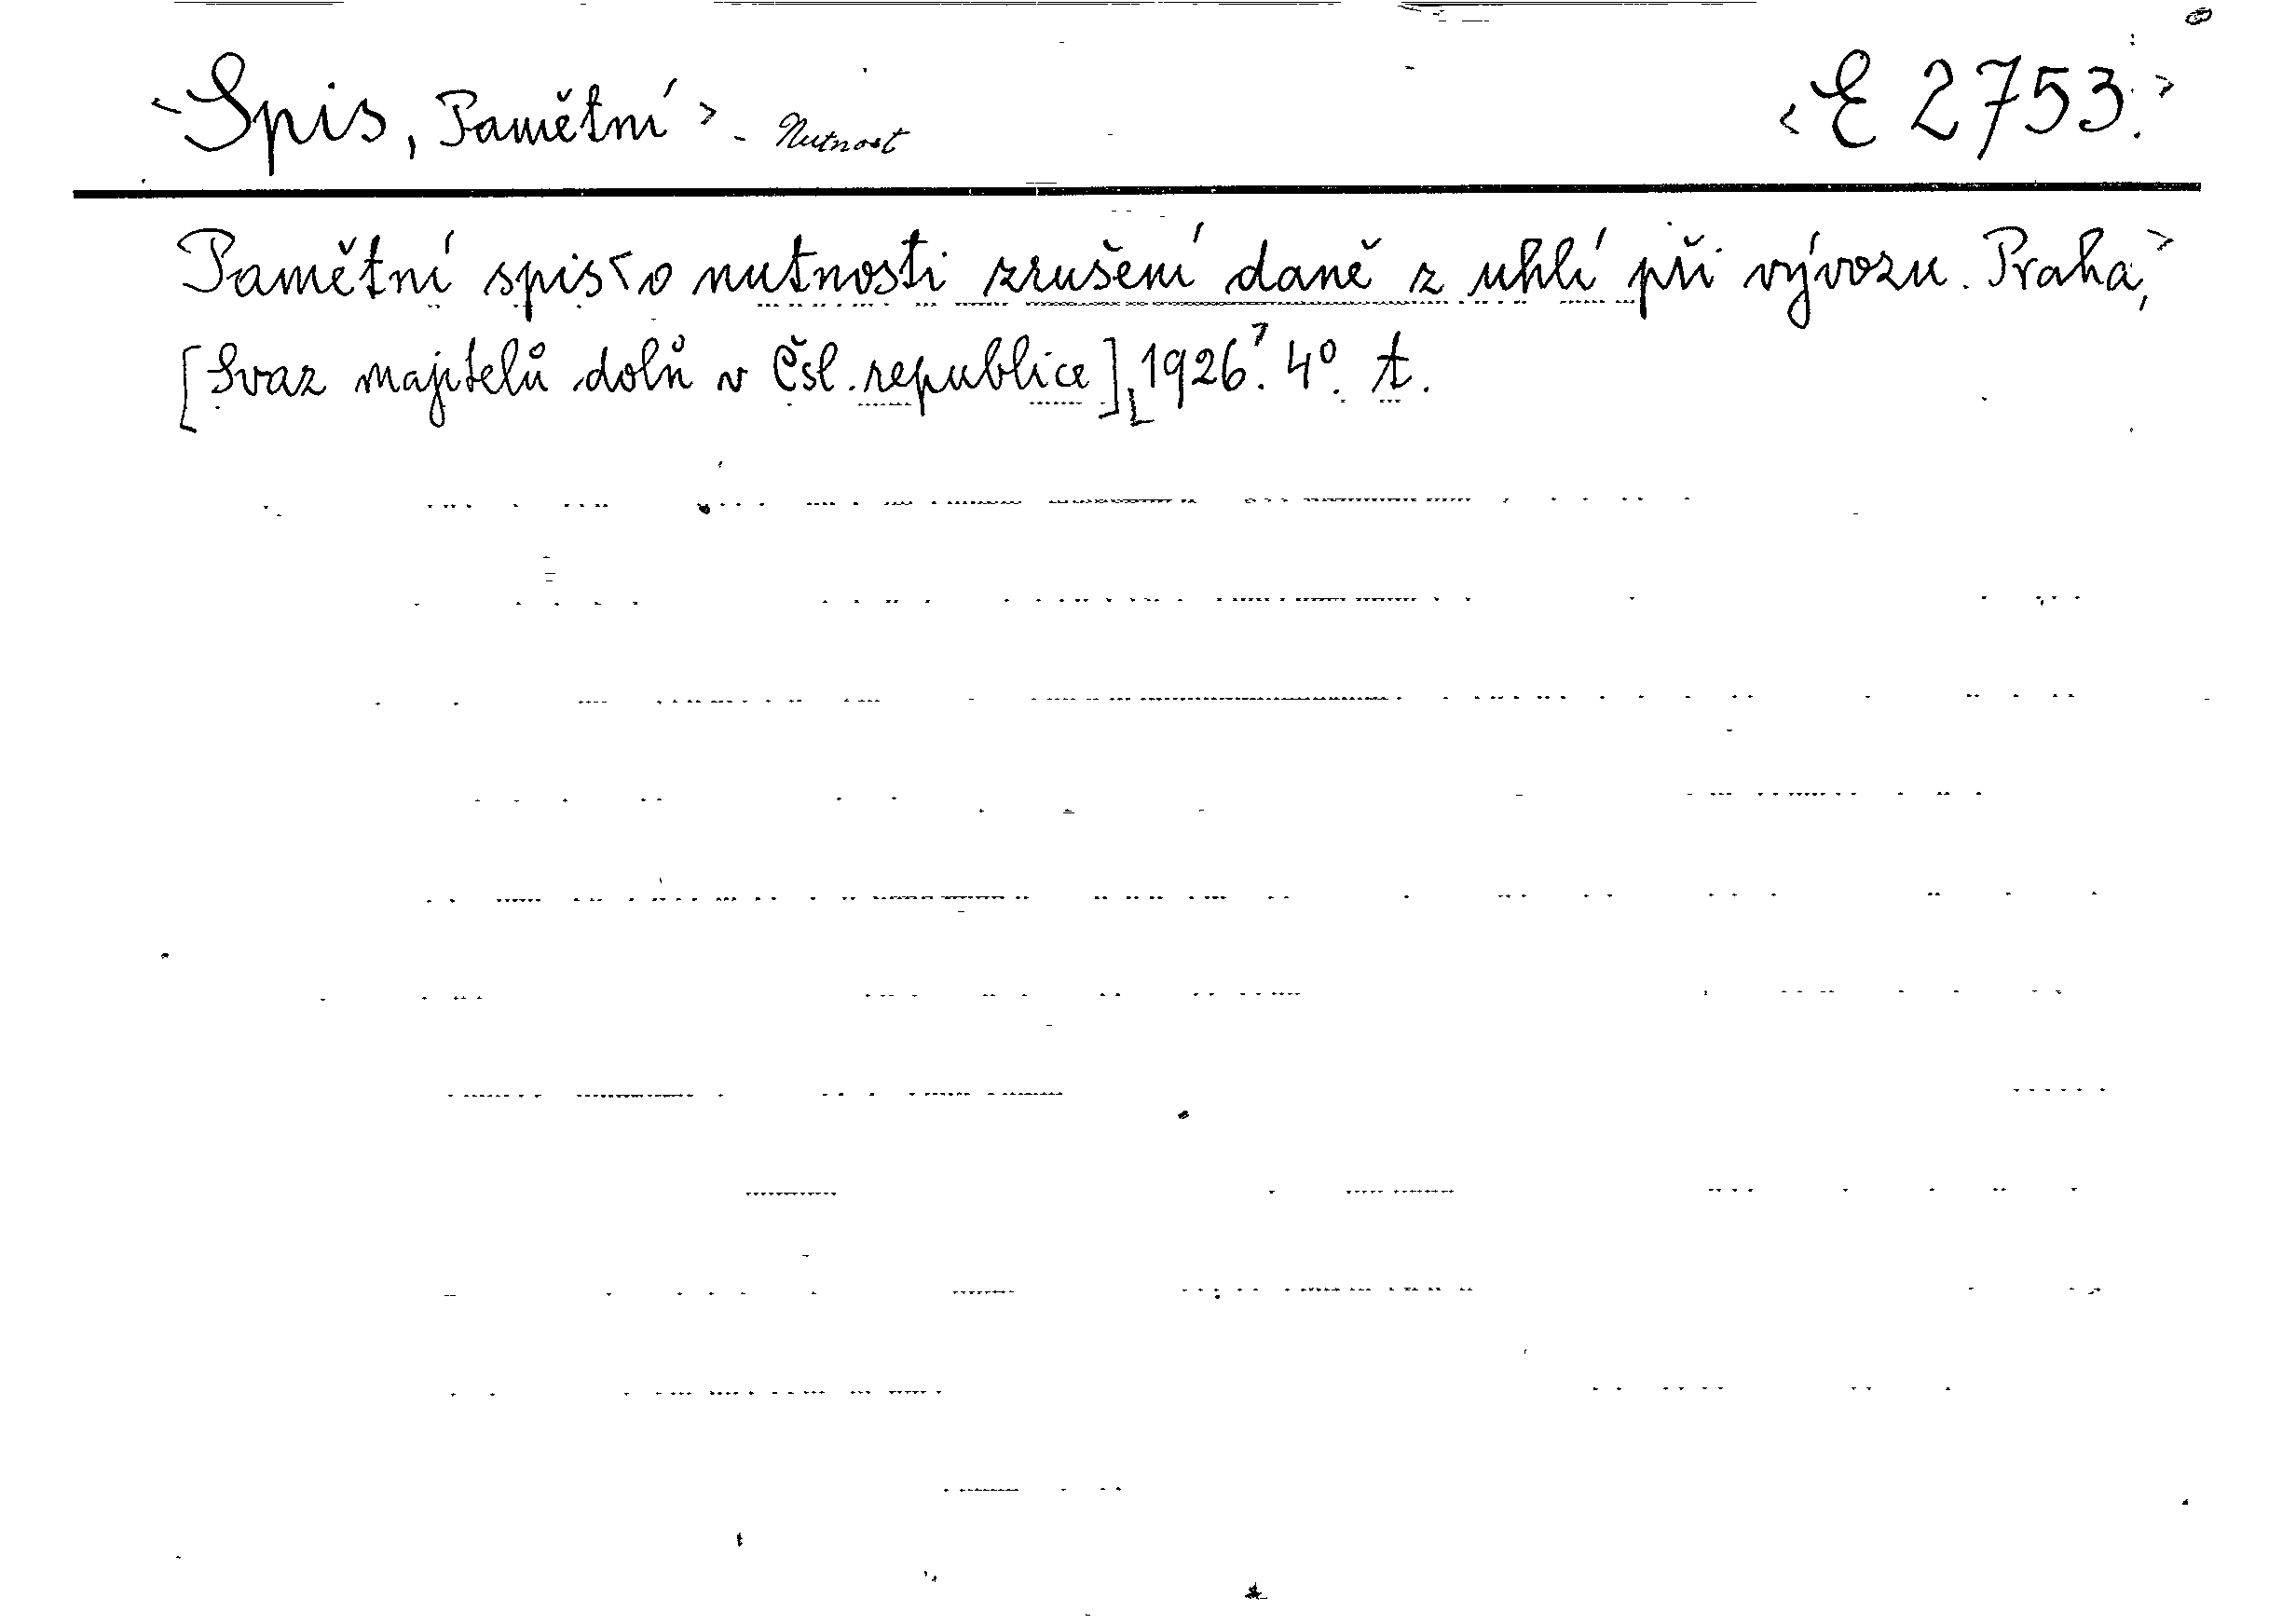 ‹Spis, Pamětní› - Nutnost ‹E 2753.›
Pamětní spis ‹o nutnosti zrušení daně z uhlí při vývozu. Praha,›
[Svaz majitelů dolů v Čsl. republice], 1926. 4°. A.